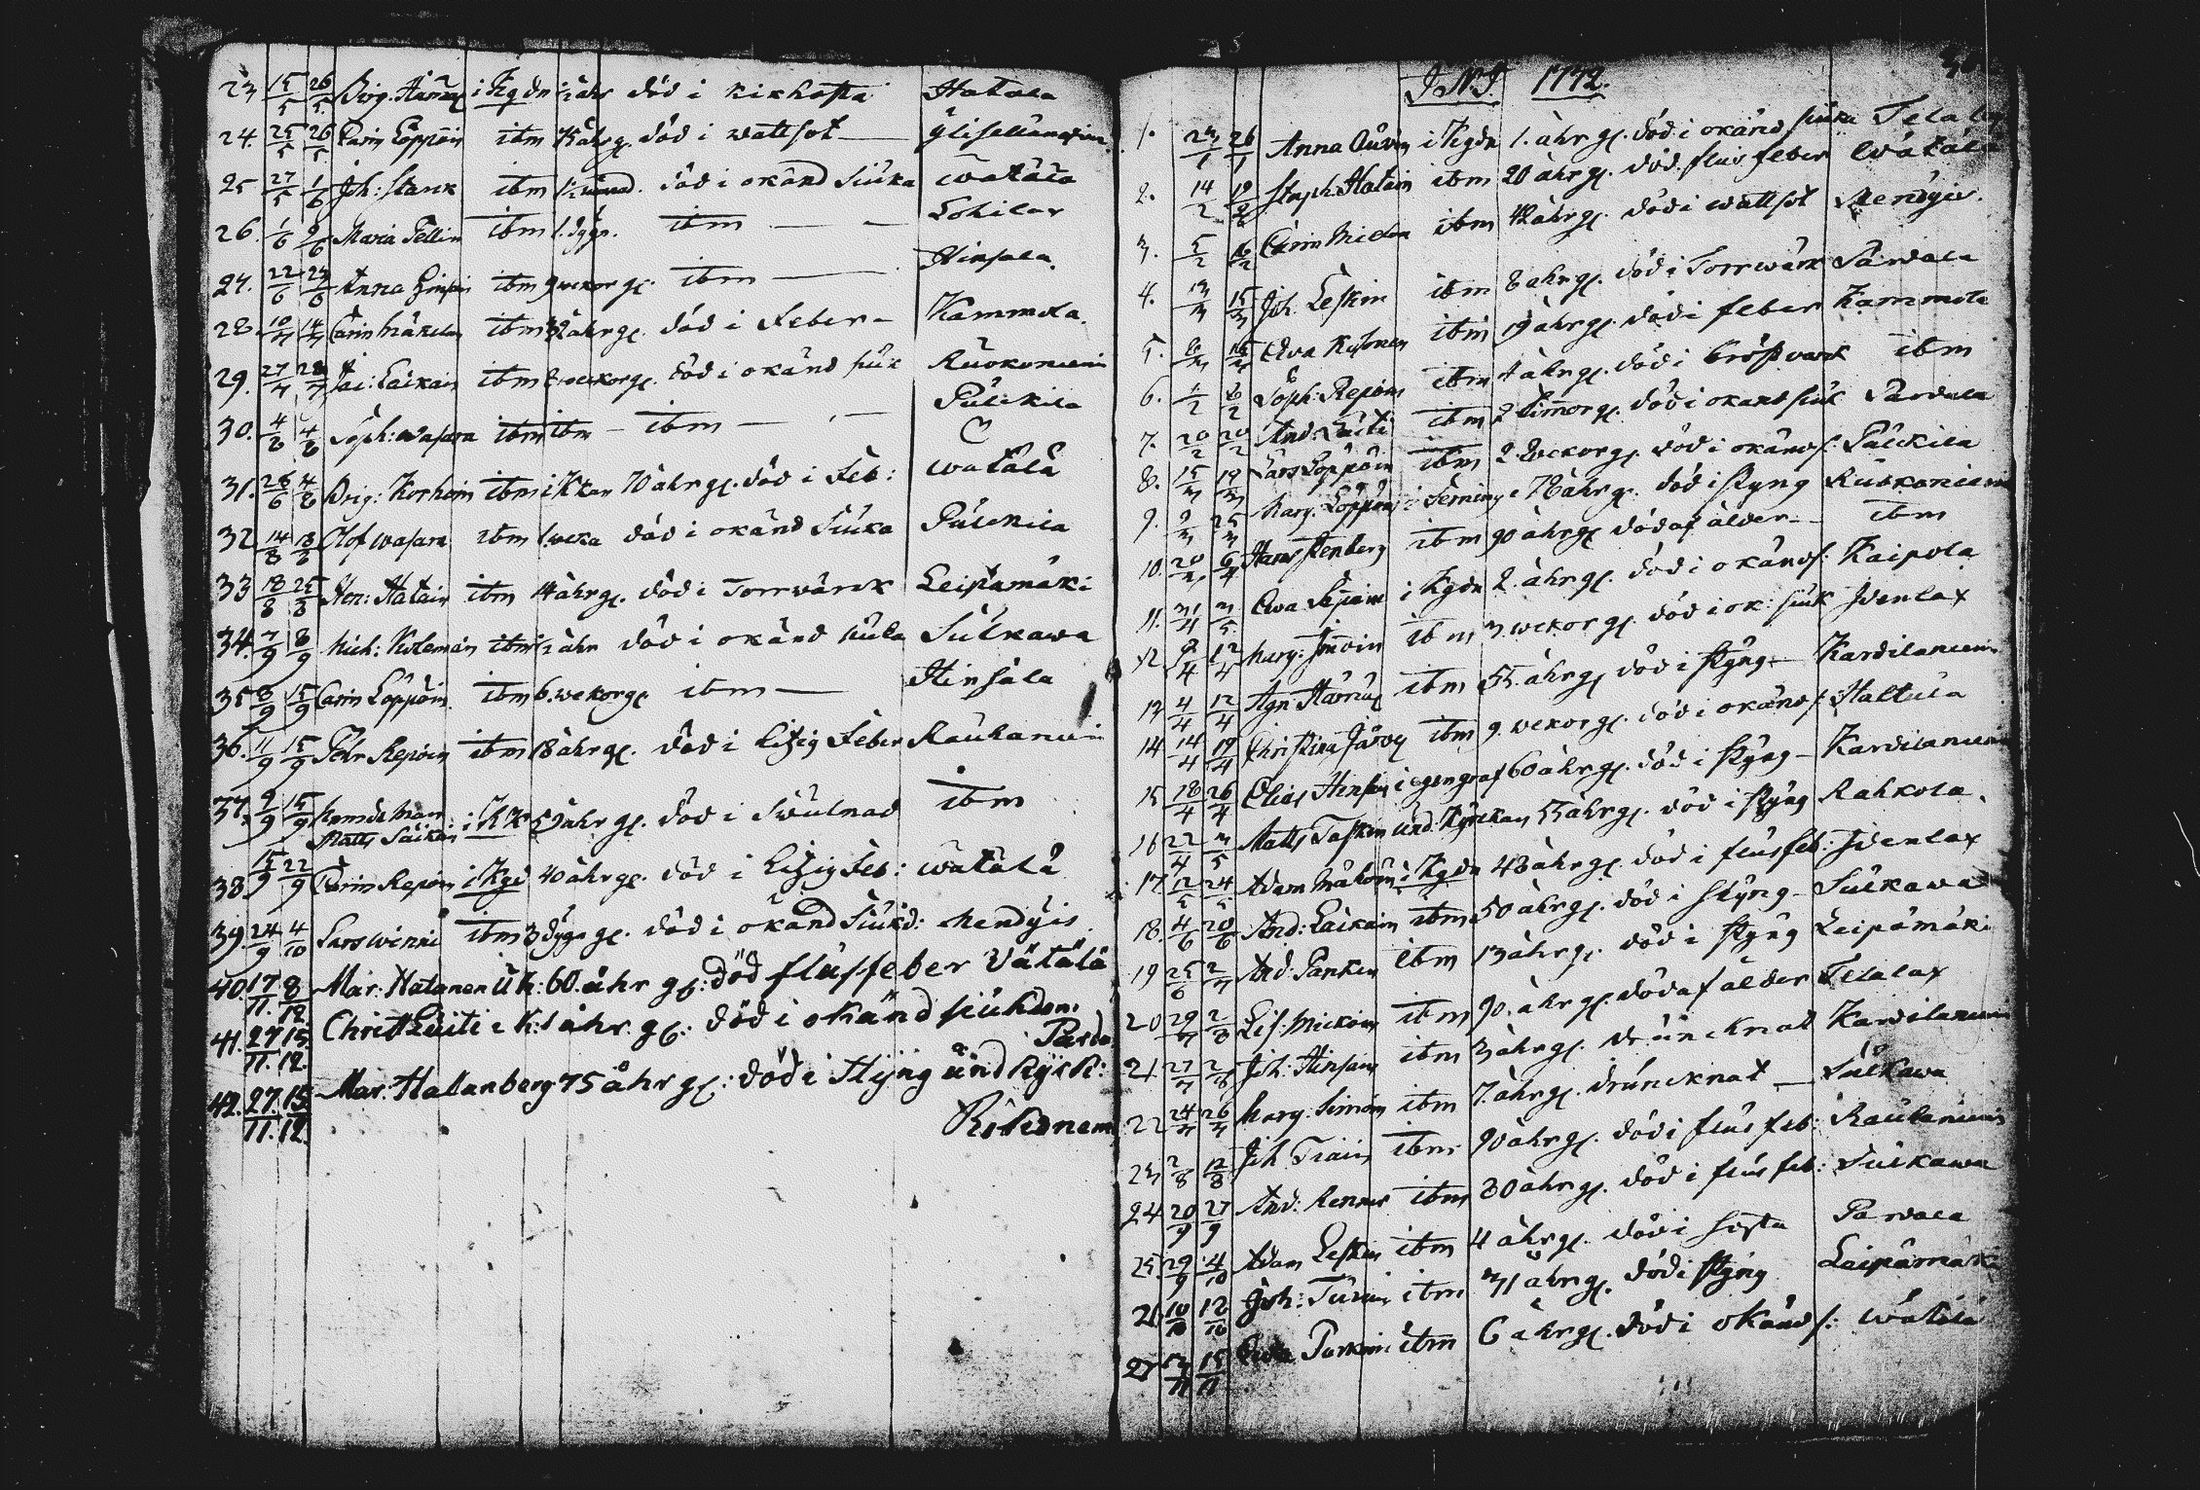 23 15/5 26/5 Brig. i Kgdn 1/2 åhr död i kikhosta Hatala
24. 25/5 26/5 Carin Loppoin itm åhr gl. död i wattsot
25 27/5 1/6 Joh: Starck itm död i okänd siuka watala
26. 1/6 9/6 Maria Pellin itm 1. dygn. itm Lohilax
27. 22/6 23/6 Anna itm 9 wekor gl. itm Hinsala
28 10/7 14/7 Carin Mäkelän itm åhr gl. död i Feber Kammola.
29. 27/7 28/7 Laikain itm wekor gl. död i okänd siuk Ruokoniemi
30. 4/8 4/8 Soph: Wasara itm itm itm Pulckila
31. 26/6 4/8 Brig: Korhoin itm i Kkan 70 åhr gl. död i Feb: watala
32 14/8 18/8 Olof Wasara itm 1. weka död i okänd siuka Pulckila
33 18/8 25/8 Hen: Hatain itm 14 åhr gl. död i Torrwärck Leipämäki
34. 7/9 8/9 Mich: Kolemain itm 1/2 åhr död i okänd siuka Sulkawa
35 8/9 15/9 Carin Loppoin itm 6. wekor gl. itm Hinsala
36. 11/9 15/9 Pehr Repoin itm 18 åhr gl. död i hitzig Feber Rauhaniemi
37. 9/9 15/9
Matts Laikain i Kk 59 åhr gl. död i Swulnad itm
38 15/9 22/9 Carin Repoin i Kgd 40 åhr gl. död i hitzig Feb: watala
39 24/9 4/10 Lars Winni itm 3 dygn gl. död i okänd Siukd: Mendyis
40 17/11. 8/12 Mar: Hatanen Uk: 60. åhr gl: död flusfeber Vätälä
41. 27/11. 15/12. Christ Luiti i K: 1 åhr. gl: död i okänd siukdom.
Parda
42. 27/11. 15/12. Mar: Hallanberg 75 åhr gl: död i Styng und kyrk:
I.N.J. 1772.
1. 23/1 26/1 Anna i Kgdn 1. åhr gl. död i okänd siuka
2. 14/2 19/2 Steph. Hatain itm 20 åhr gl. död. flus feber Watala
3. 5/2 16/2 Carin Mickoin itm 42 åhr gl. död i wattsot Mendyis.
4. 13/3 15/3 Joh. Leskin itm 8 åhr gl. död i Torrwärk Pardala
5. Ewa Kutonen itm 19 åhr gl. död i feber Kammola
6. 1/2 2/2 Soph: Repoin itm 4 åhr gl. död i bröst värk itm
7. 20/2 20/2 And: Luiti itm 2 Timmor gl. död i okänd siuk Pardala
8. 15/3 19/3 Lars Loppoin itm 2. Wekor gl. död i okänd s: Pulckila
9. 9/3 25/3 Marg. Loppoin i Seming: 78 åhr gl. död i styng Ruokoniemi
10. 20/3 6/4 Hans Stenberg itm 90 åhr gl. död af ålder itm
11. Ewa i Kgdn 2. åhr gl. död i okänd s: Kaipola
12 9/4 12/4 Marg: Immoin itm 3. wekor gl. död i ok: siuk Idenlax
13 4/4 12/4 Agn: itm 55. åhr gl. död i Styng Kardilaniemi
14 14/4 19/4 Christina Järvy itm 9. wekor gl. död i okänd s: Haltula
15 18/4 26/4 Elias Hinsain i egen graf 60 åhr gl. död i Styng Kardilaniemi
16 22/4 3/5 Matts Taskin und: kyrckan 55 åhr gl. död i styng Rahkola.
17. 12/5 24/5 Adam Makoin i Kgdn 48 åhr gl. död i flus feb: Idenlax
18. 4/6 20/6 And: Laikain itm 50 åhr gl. död i styng Sulkawa
19 25/6 2/7 And: Pankin itm 13 åhr gl. död i styng Leipämäki
20 29/7 2/8 Lis: Mickoin itm 90. åhr gl. död af ålder Telalax
21 27/7 2/8 Joh: Hinsain itm 3 åhr gl. druncknat Kardilaniemi
22 24/7 26/7 Marg: Simoin itm 7. åhr gl. druncknat Sulkawa
23 2/8 12/8 Joh. Train itm 90 åhr gl. död i flus feb: Rauhaniemi
24 20/9 27/9 And: itm 80 åhr gl. död i flus feb: Sulkawa
25. 29/9 4/10 Adam Leskin itm 4 åhr gl. död i hosta Pardala
26 10/10 12/10 Joh: itm 71 åhr gl. död i styng Leipämäki
27 15/11 itm 6 åhr gl. död i okänd s: Watala